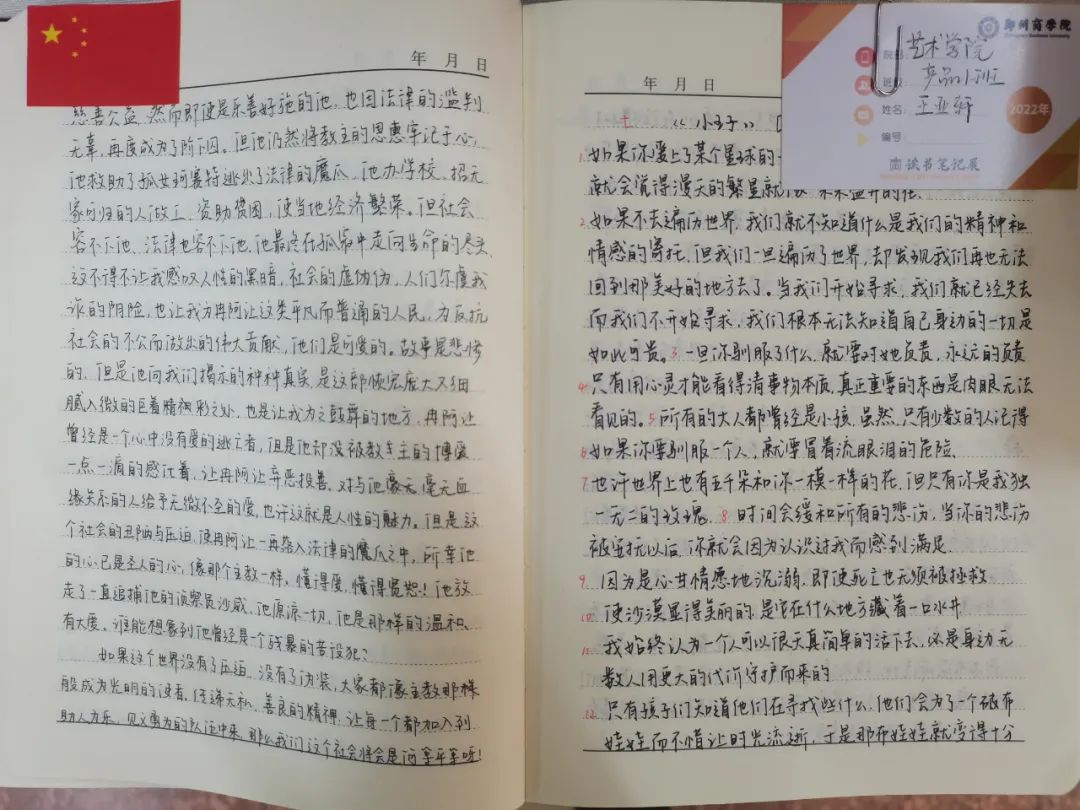 年 月 日
慈善公益。然而即便是乐善好施的他,也因法律的滥判
无辜,再度成为了阶下囚。但他仍然将教主的恩惠牢记于心,
他救助了孤女珂赛特逃出了法律的魔爪。他办学校、招无
家可归的人做工,资助贫困,使当地经济繁荣。但社会
容不下他,法律也容不下他,他最终在孤寂中走向生命的尽头
这不得不让我感叹人性的黑暗,社会的虚伪伪,人们尔虞我
诈的阴险,也让我为冉阿让这类平凡而普通的人民,为反抗
社会的不公而做出的伟大贡献,他们是可爱的。故事是悲惨
的,但是他向我们揭示的种种真实,是这部恢宏庞大不细
腻入微的巨着精神彩之处,也是让我为之鼓舞的地方,冉阿让
曾经是一个心中没有爱的逃亡者,但是他却没被教主的博爱
一点一滴的感化着,让冉阿让弃恶投善。对与他毫无,毫无血
缘关系的人给予无微不至的爱,也许这就是人性的魅力。但是这
个社会的丑陋与压迫,使冉阿让一再落入法律的魔爪之中,所幸他
的心已是圣人的心,像那个主教一样,懂得爱,懂得宽恕!他放
走了一直追捕他的侦察员沙威,他原凉一切,他是那样的温和、
有大度。谁能想象到他曾经是一个残暴的苦役犯?
如果这个世界没有了压迫,没有了伪装,大家都像主教那样
般成为光明的使者,传递无私、善良的精神,让每一个都加入到
助人为乐,见义勇为的队伍中来,那么我们这个社会将会是何等平等呀!
年 月 日
七 《小王子》
1. 如果你爱上了某个星球的一
就会觉得漫天的繁星就
2. 如果不去遍历世界,我们就不知道什么是我们的精神和
情感的寄托,但我们一旦遍历了世界,却发现我们再也无法
回到那美好的地方去了。当我们开始寻求,我们就已经失去
而我们不开始寻求,我们根本无法知道自己身边的一切是
如此可贵。3. 一旦你驯服了什么,就要对她负责,永远的负责
4. 只有用心灵才能看得清事物本质,真正重要的东西是肉眼无法
看见的。5 所有的大人都曾经是小孩,虽然,只有少数的人记得
6 如果你要驯服一个人,就要冒着流眼泪的危险
7. 也许世界上也有五千朵和你一模一样的花,但只有你是我独
一无二的玫瑰。8. 时间会缓和所有的悲伤,当你的悲伤
被安抚以后,你就会因为认识过我而感到满足.
9. 因为是心甘情愿地沉溺,即使死亡也无须被拯救
10. 使沙漠显得美丽的,是它在什么地方藏着一口水井
11. 我始终认为一个人可以很天真简单的活下去,必是身边无
数人用更大的代价守护而来的
12. 只有孩子们知道他们在寻找些什么,他们会为了一个破布
娃娃而不惜让时光流逝,于是那布娃娃就变得十分
郑州商学院
院部: 艺术学院
班级: 产品1班
姓名: 王亚轩
编号:
2022年
面读书笔记展